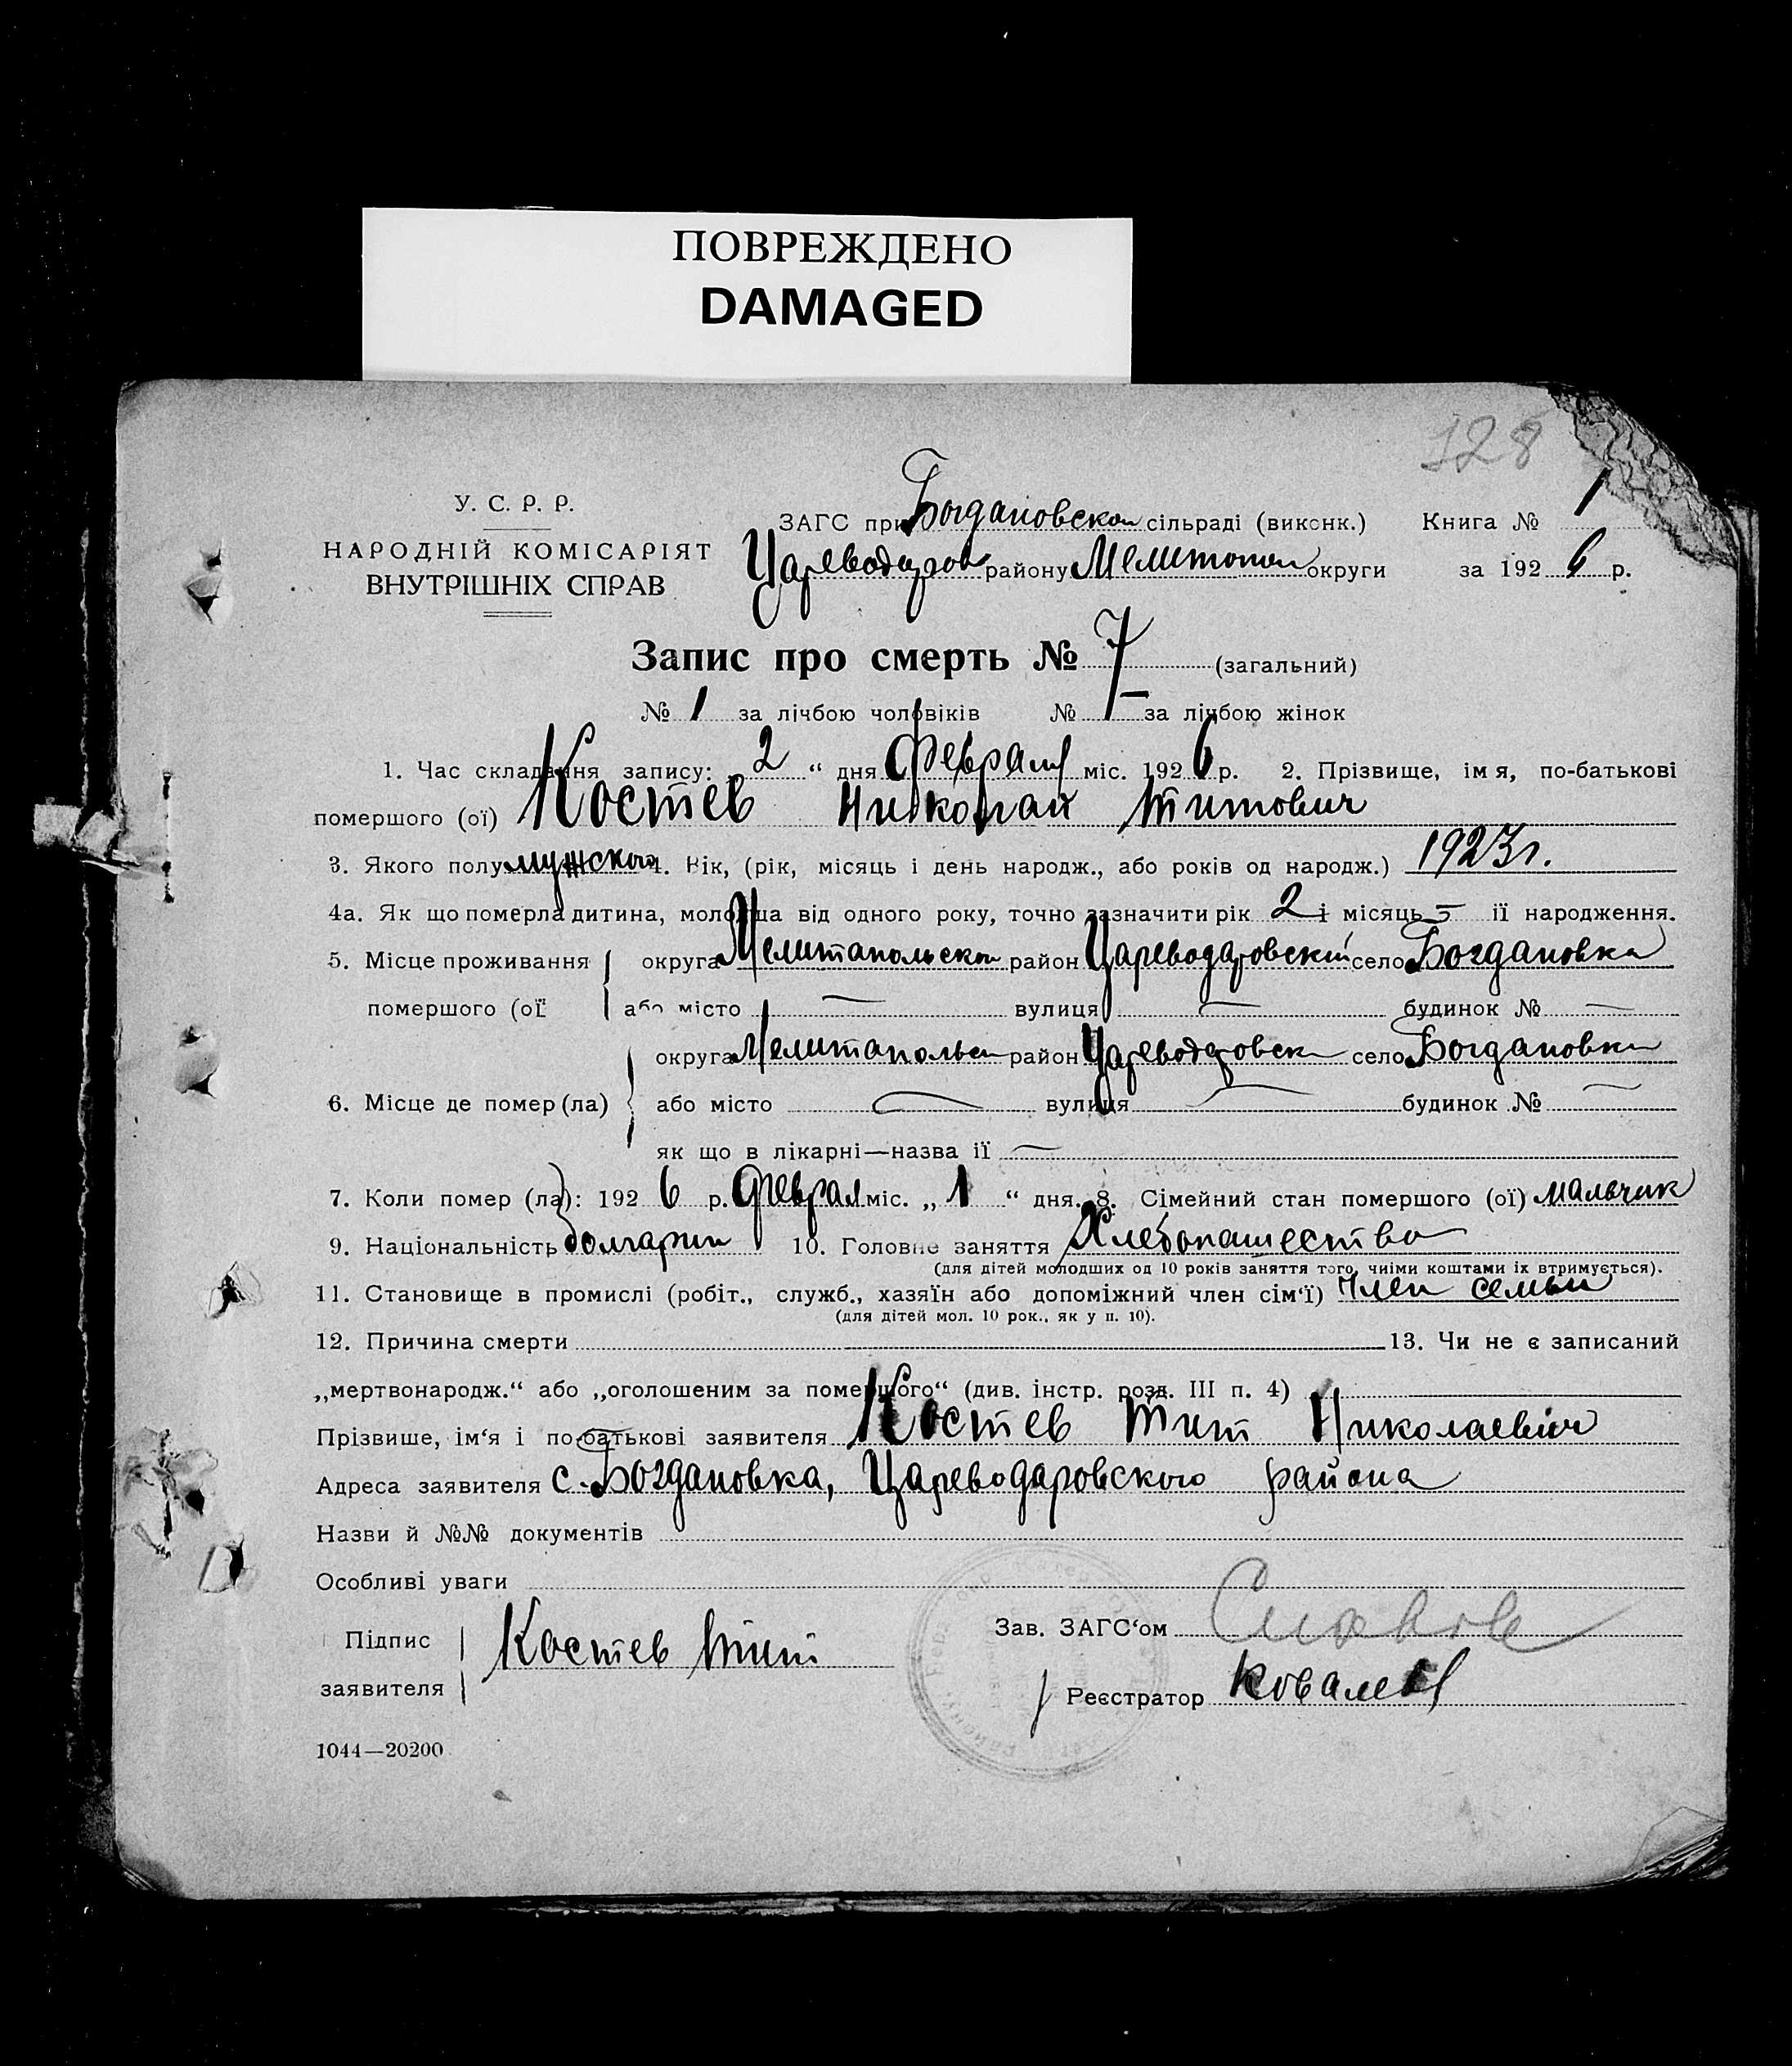 ПОВРЕЖДЕНО
DAMAGED
128
У. С. Р. Р.
НАРОДНІЙ КОМІСАРІЯТ
ВНУТРІШНІХ СПРАВ
ЗАГС при Богдановской сільраді (виконк.) Книга № 1
Цареводаров району Мелитопол округи за 1926 р.
Запис про смерть № 7 (загальний)
№ 1 за лічбою чоловіків № — за лічбою жінок
1. Час складання запису: 2 “ дня Февраля міс. 1926 р. 2. Прізвище, імя, по-батькові
помершого (ої) Костев Николай Титович
3. Якого полу мужского 4. Рік, (рік, місяць і день народж., або років од народж.) 1923 г.
4а. Як що померла дитина, молодша від одного року, точно зазначити рік 2 і місяць 5 її народження.
5. Місце проживання округа Мелитапольской район Цареводаровский село Богдановка
помершого (ої або місто — вулиця — будинок № —
округа Мелитапольск район Цареводаровск село Богдановка
6. Місце де помер (ла) або місто — вулиця — будинок № —
як що в лікарні—назва її —
7. Коли помер (ла): 1926 р. Феврал міс. „ 1 “ дня. 8. Сімейний стан помершого (ої) мальчик
9. Національність болгарин 10. Головне заняття Хлебопашество
(для дітей молодших од 10 років заняття того, чиїми коштами їх втримується).
11. Становище в промислі (робіт., служб., хазяїн або допоміжний член сім‘ї) Член семьи
(для дітей мол. 10 рок., як у п. 10).
12. Причина смерти 13. Чи не є записаний
„мертвонародж.“ або „оголошеним за помершого“ (див. інстр. розд. III п. 4)
Прізвише, ім‘я і по-батькові заявителя Костев Тит Николаевич
Адреса заявителя с. Богдановка, Цареводаровского района
Назви й №№ документів
Особливі уваги
Підпис Костев Тит Зав. ЗАГС‘ом
заявителя Реєстратор Ковалев
1044—20200